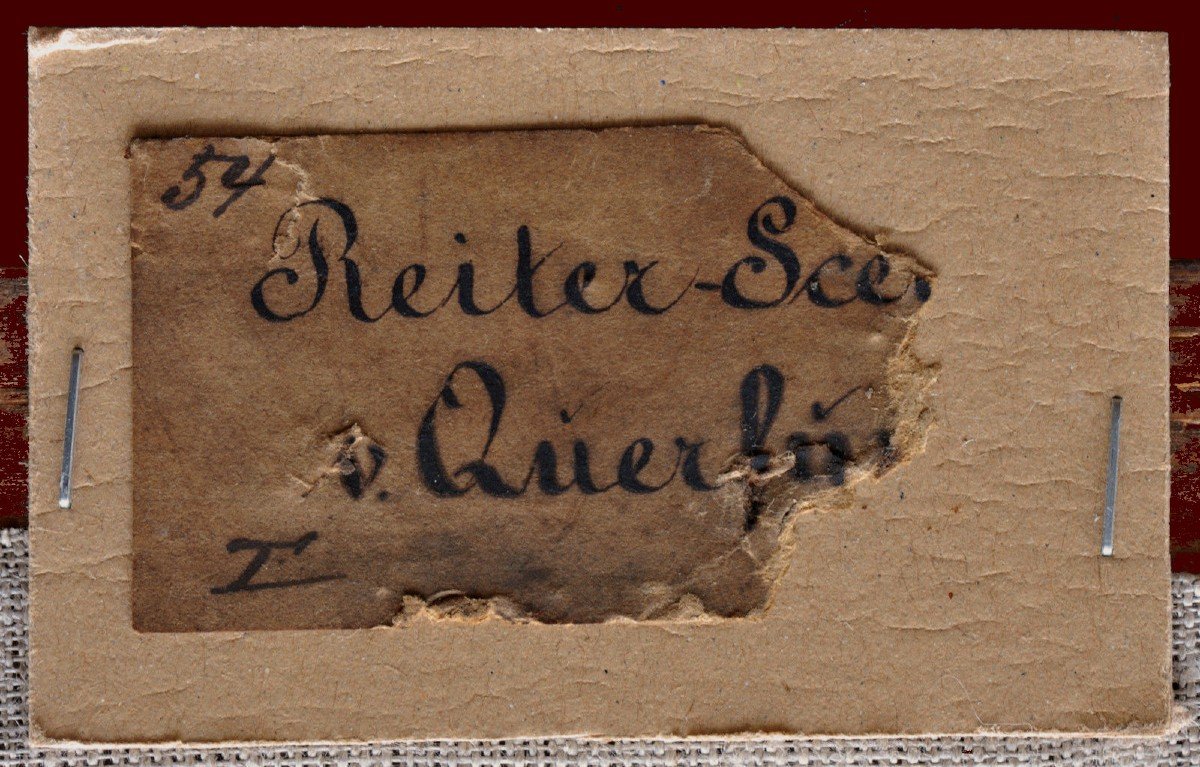 54
Reiter-Sce
v. Querfu
I